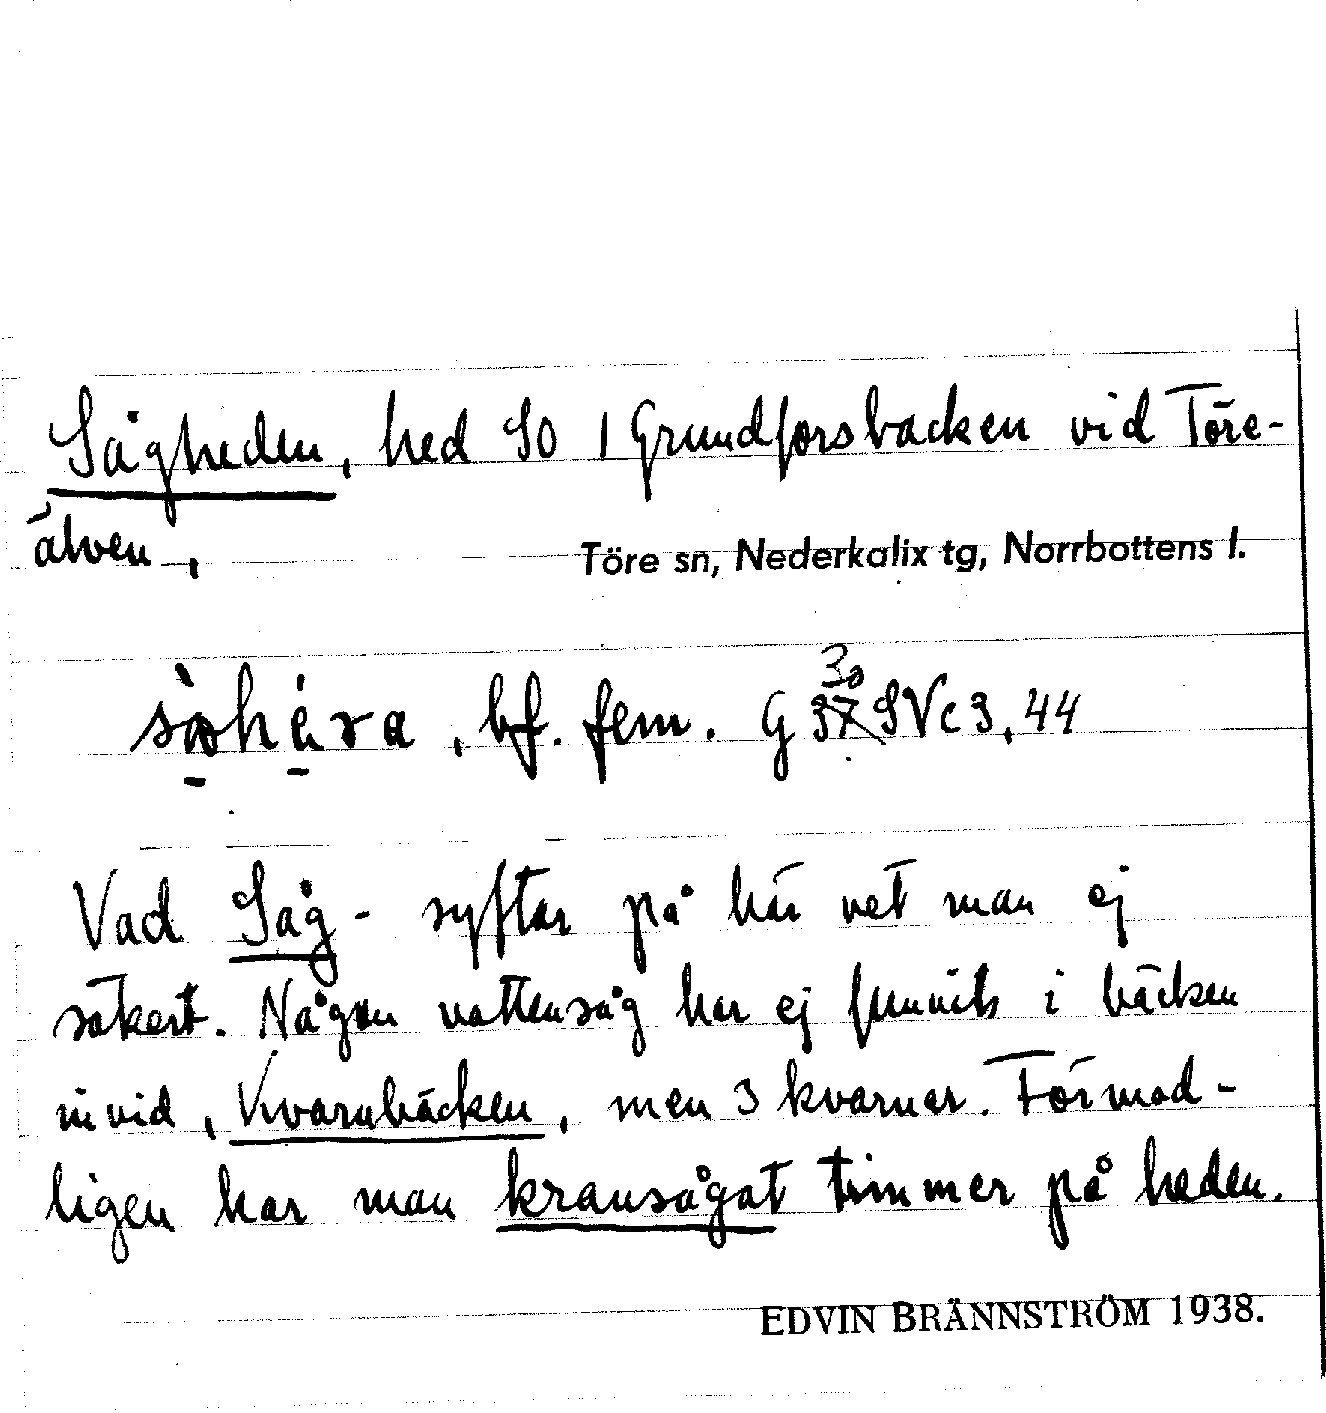 Sågheden, hed SO / Grundforsbacken vid Töre-
älven,
Töre sn, Nederkalix tg, Norrbottens l.
30
bf. fem. G 37 SVc3,44
Vad Såg- syftar på här vet man ej
säkert. Någon vattensåg har ej funnits i bäcken
invid, Kvarnbäcken, men 3 kvarnar. Förmod-
ligen har man kransågat timmer på heden.
EDVIN BRÄNNSTRÖM 1938.